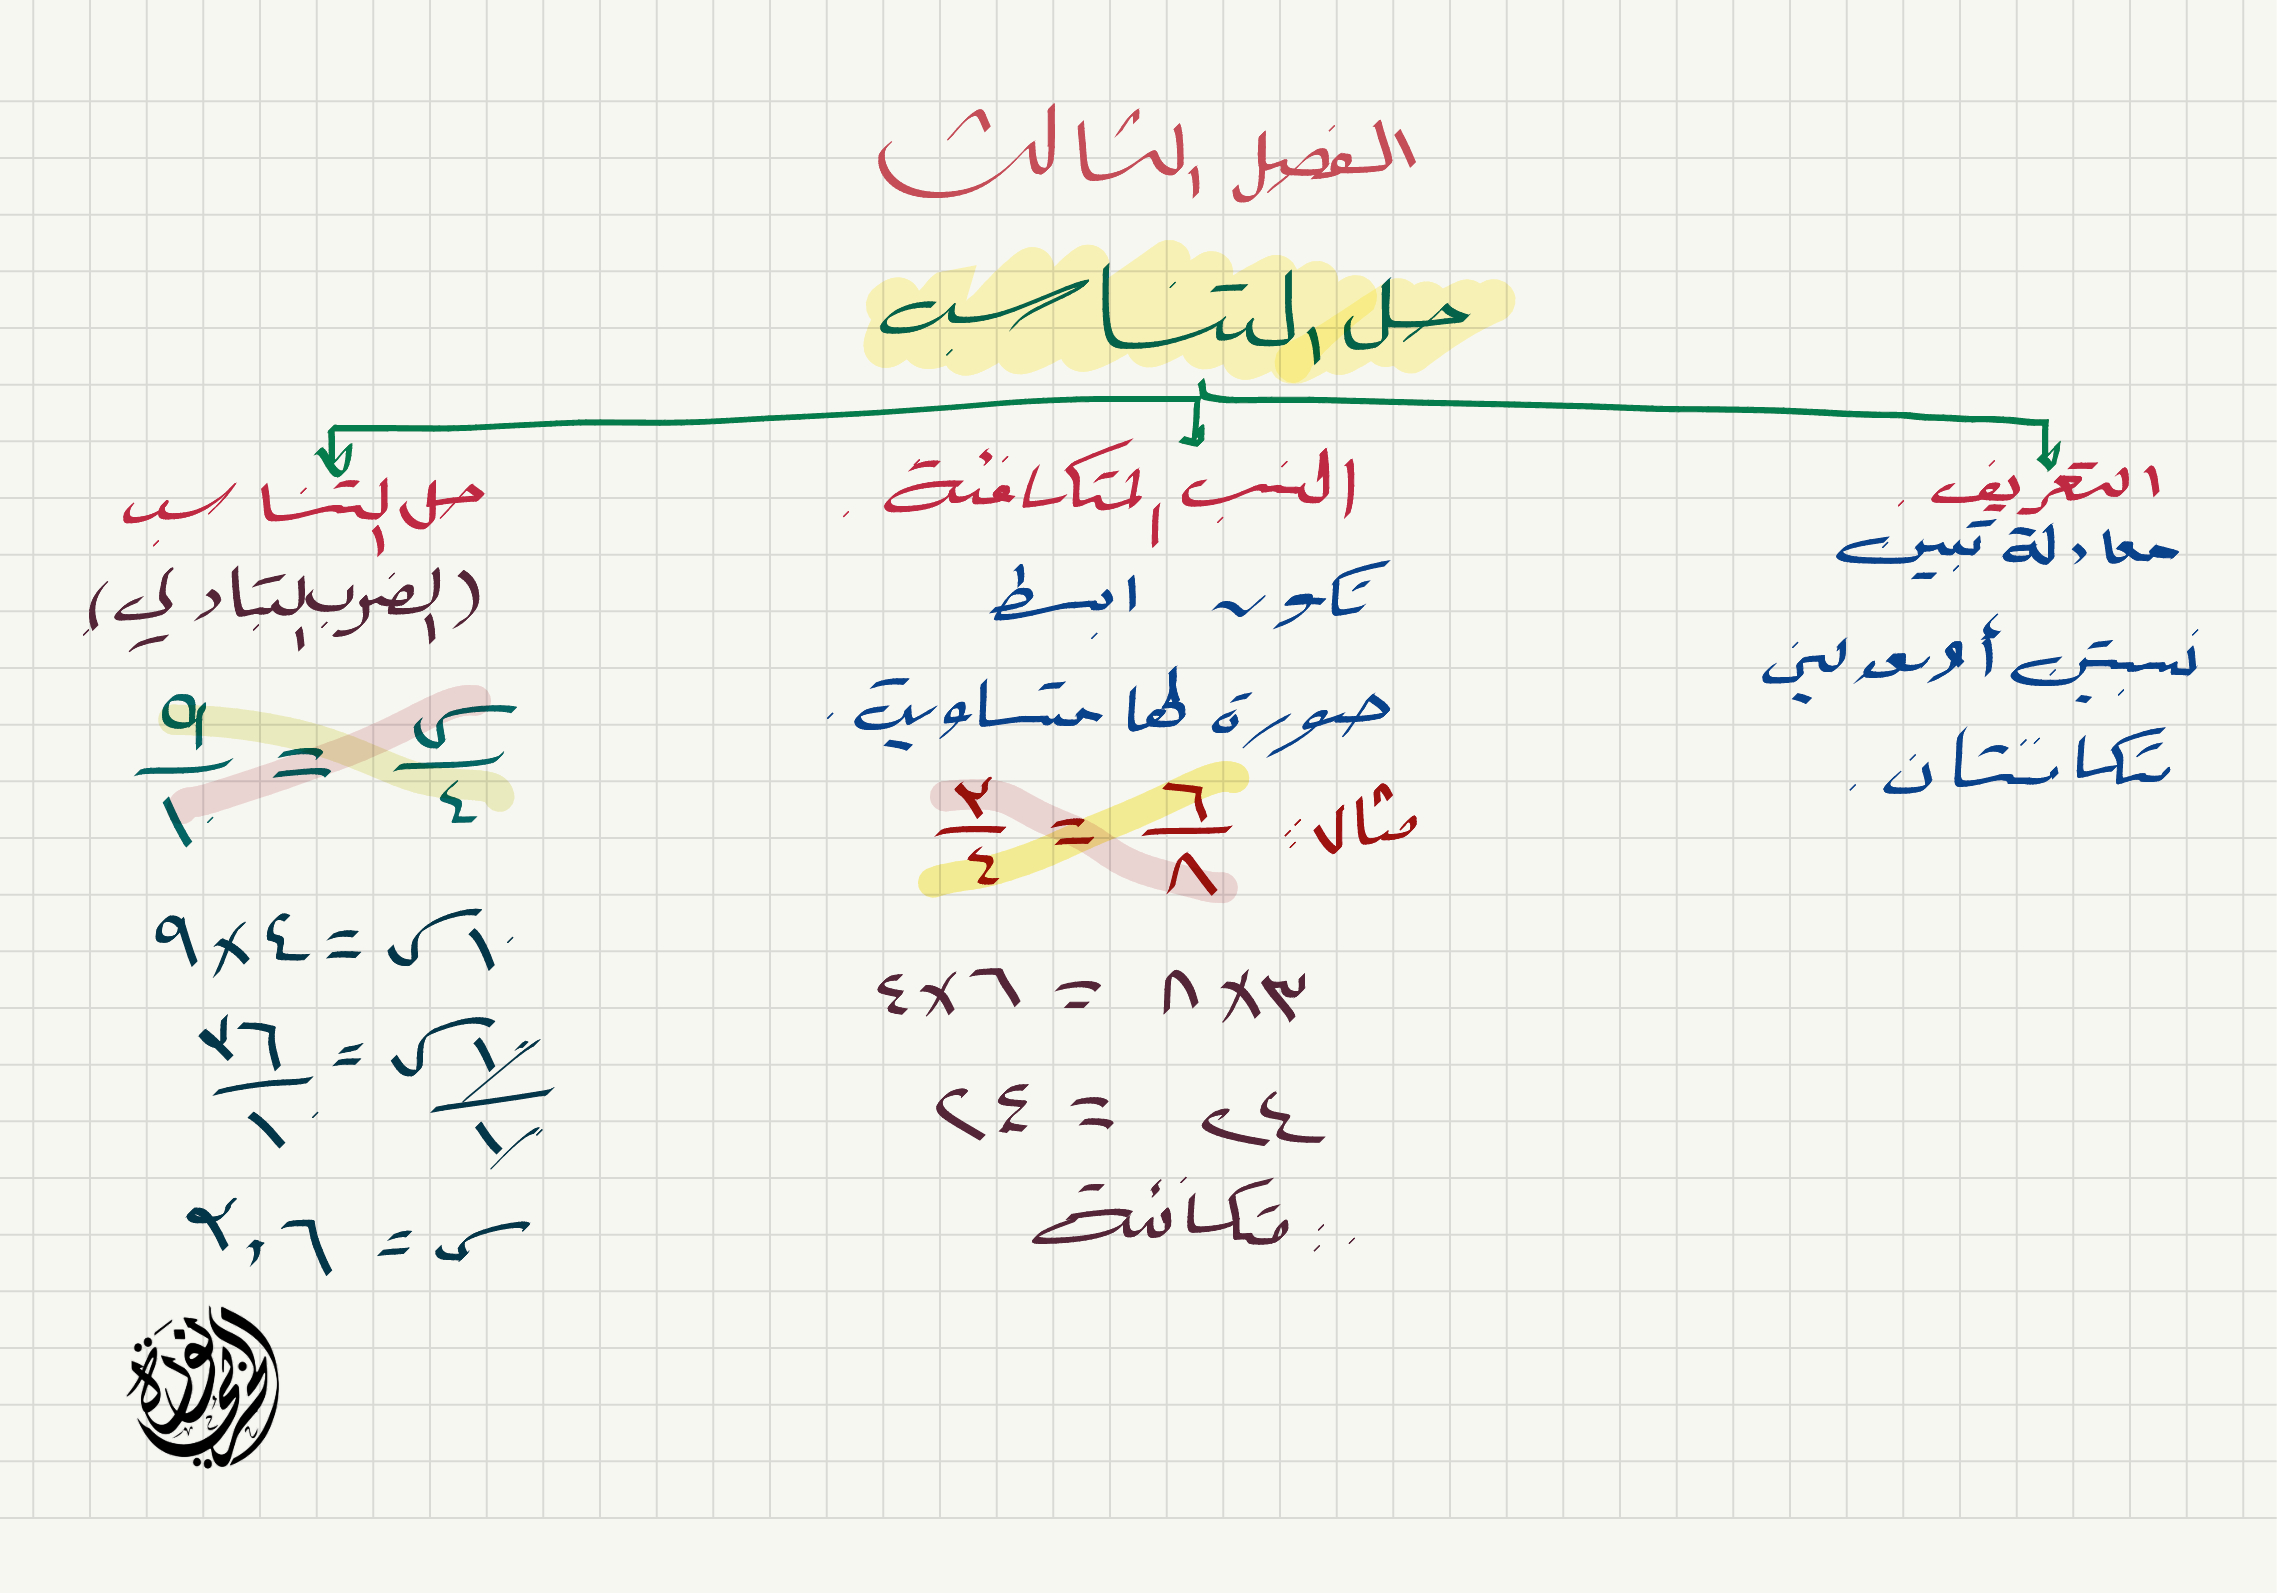 الفصل الثالث
حل التناسب
التعريف
معادلة تبين
نسبتين أو معدلين
متكافئتان
النسب المتكافئة
تكون ابسط
صورة لها متساوية
مثال: ٦/٨ = ٣/٤
٣×٨ = ٦×٤
٢٤ = ٢٤
∴ متكافئة
حل التناسب
(الضرب التبادلي)
س/٤ = ٩/١٠
١٠س = ٤×٩
١٠س/١٠ = ٣٦/١٠
س = ٣,٦